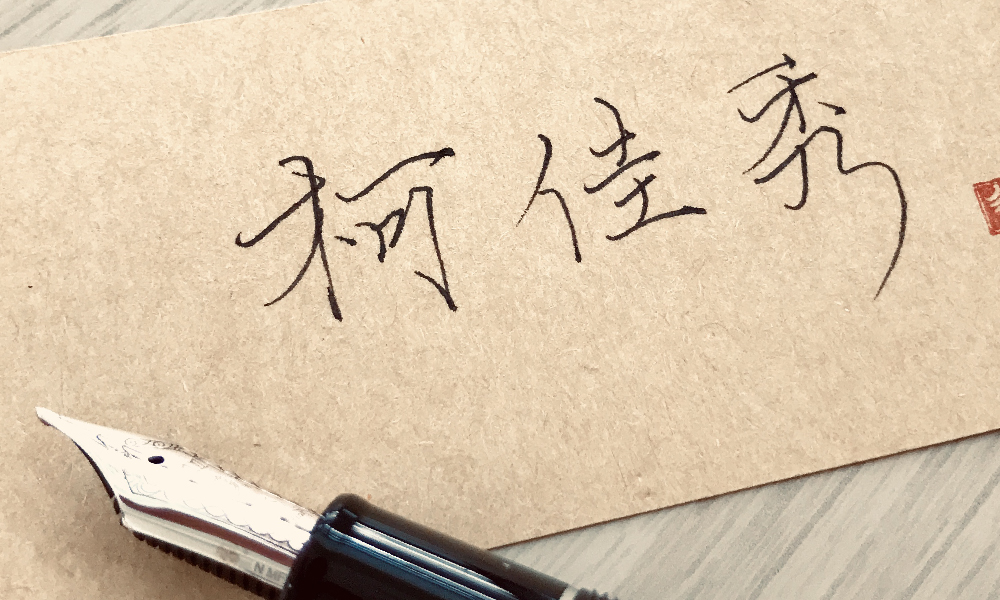 柯佳秀